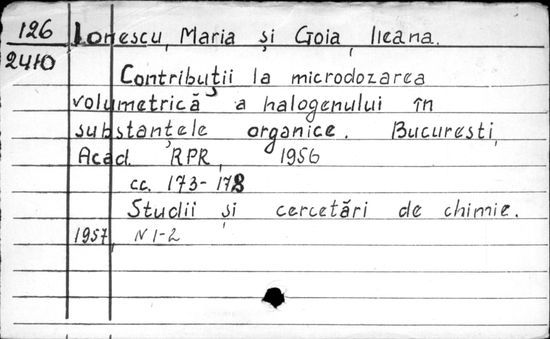 126 Ionescu, Maria și Goia, Ileana.
2410
Contribuții la microdozarea
volumetrică a halogenului în
substanțele organice. București,
Acad. RPR, 1956
cc. 173-178
Studii și cercetări de chimie.
1957, N 1-2